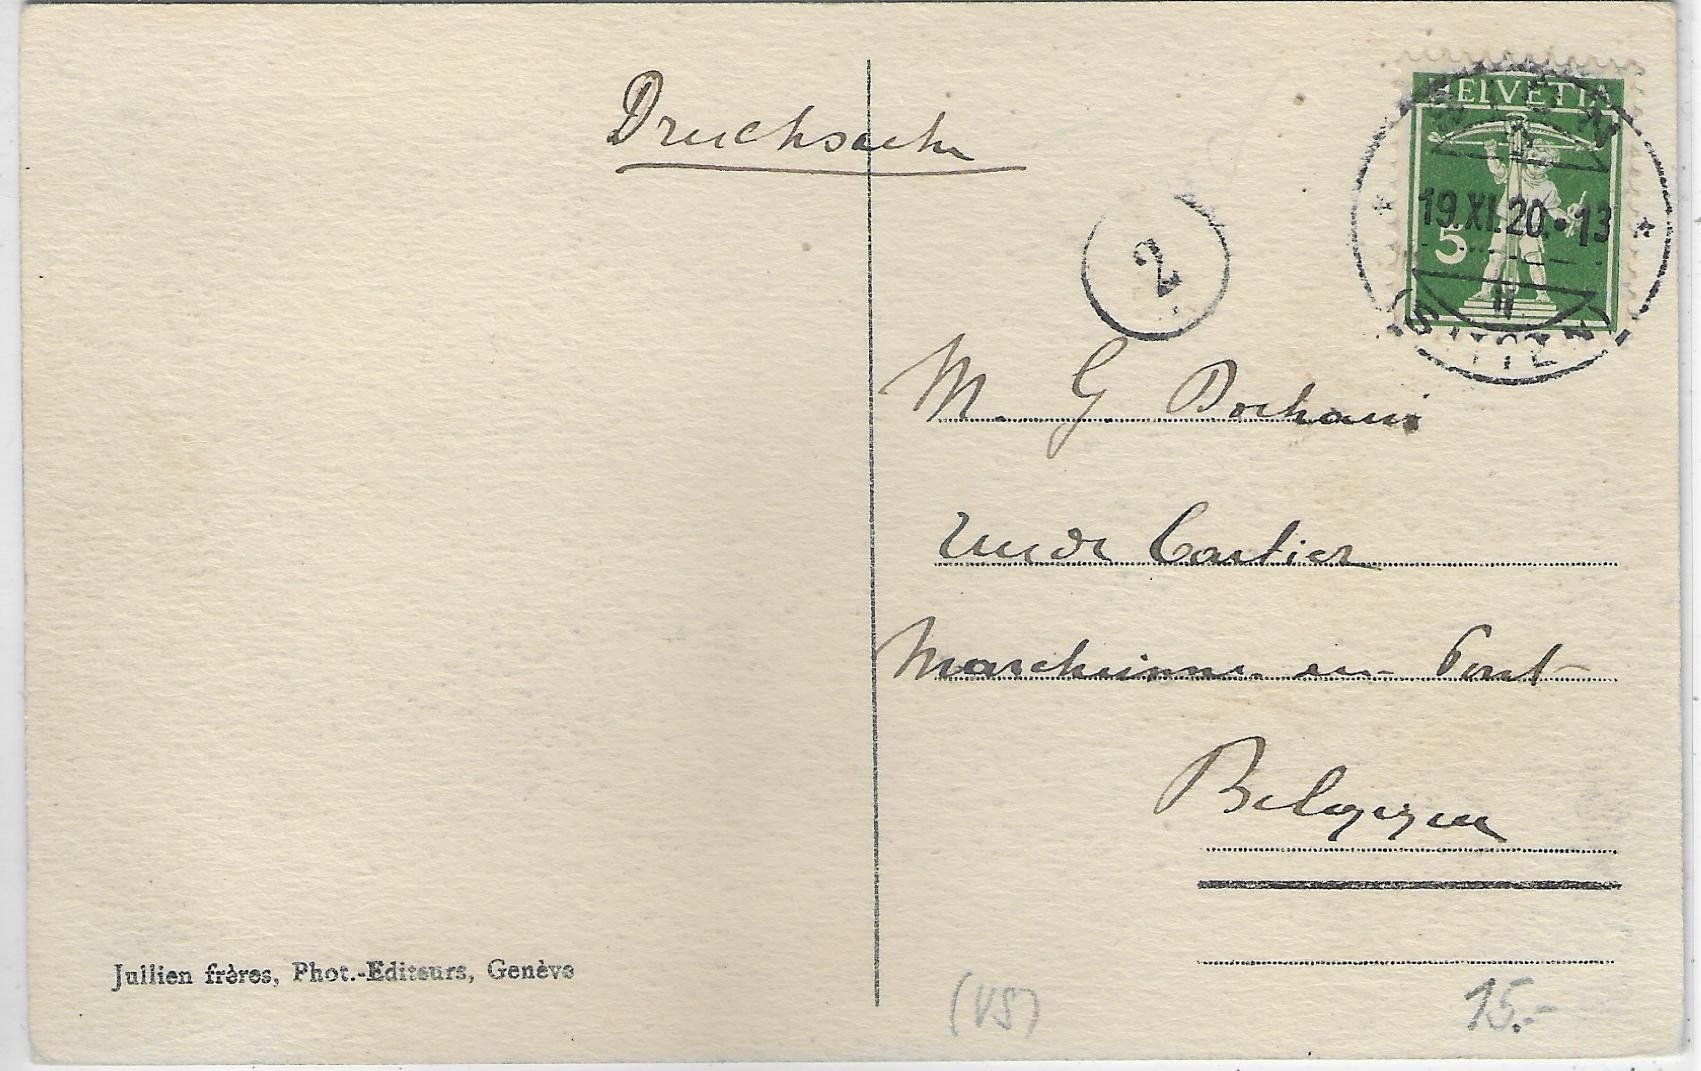 Drucksache
HELVETIA
SION
19.XI.20.-13
5
II
SITTEN
2
M. G.
Rue de Cartier
Marchienne au Pont
Belgique
Jullien frères, Phot.-Editeurs, Genève
(VS)
15.-